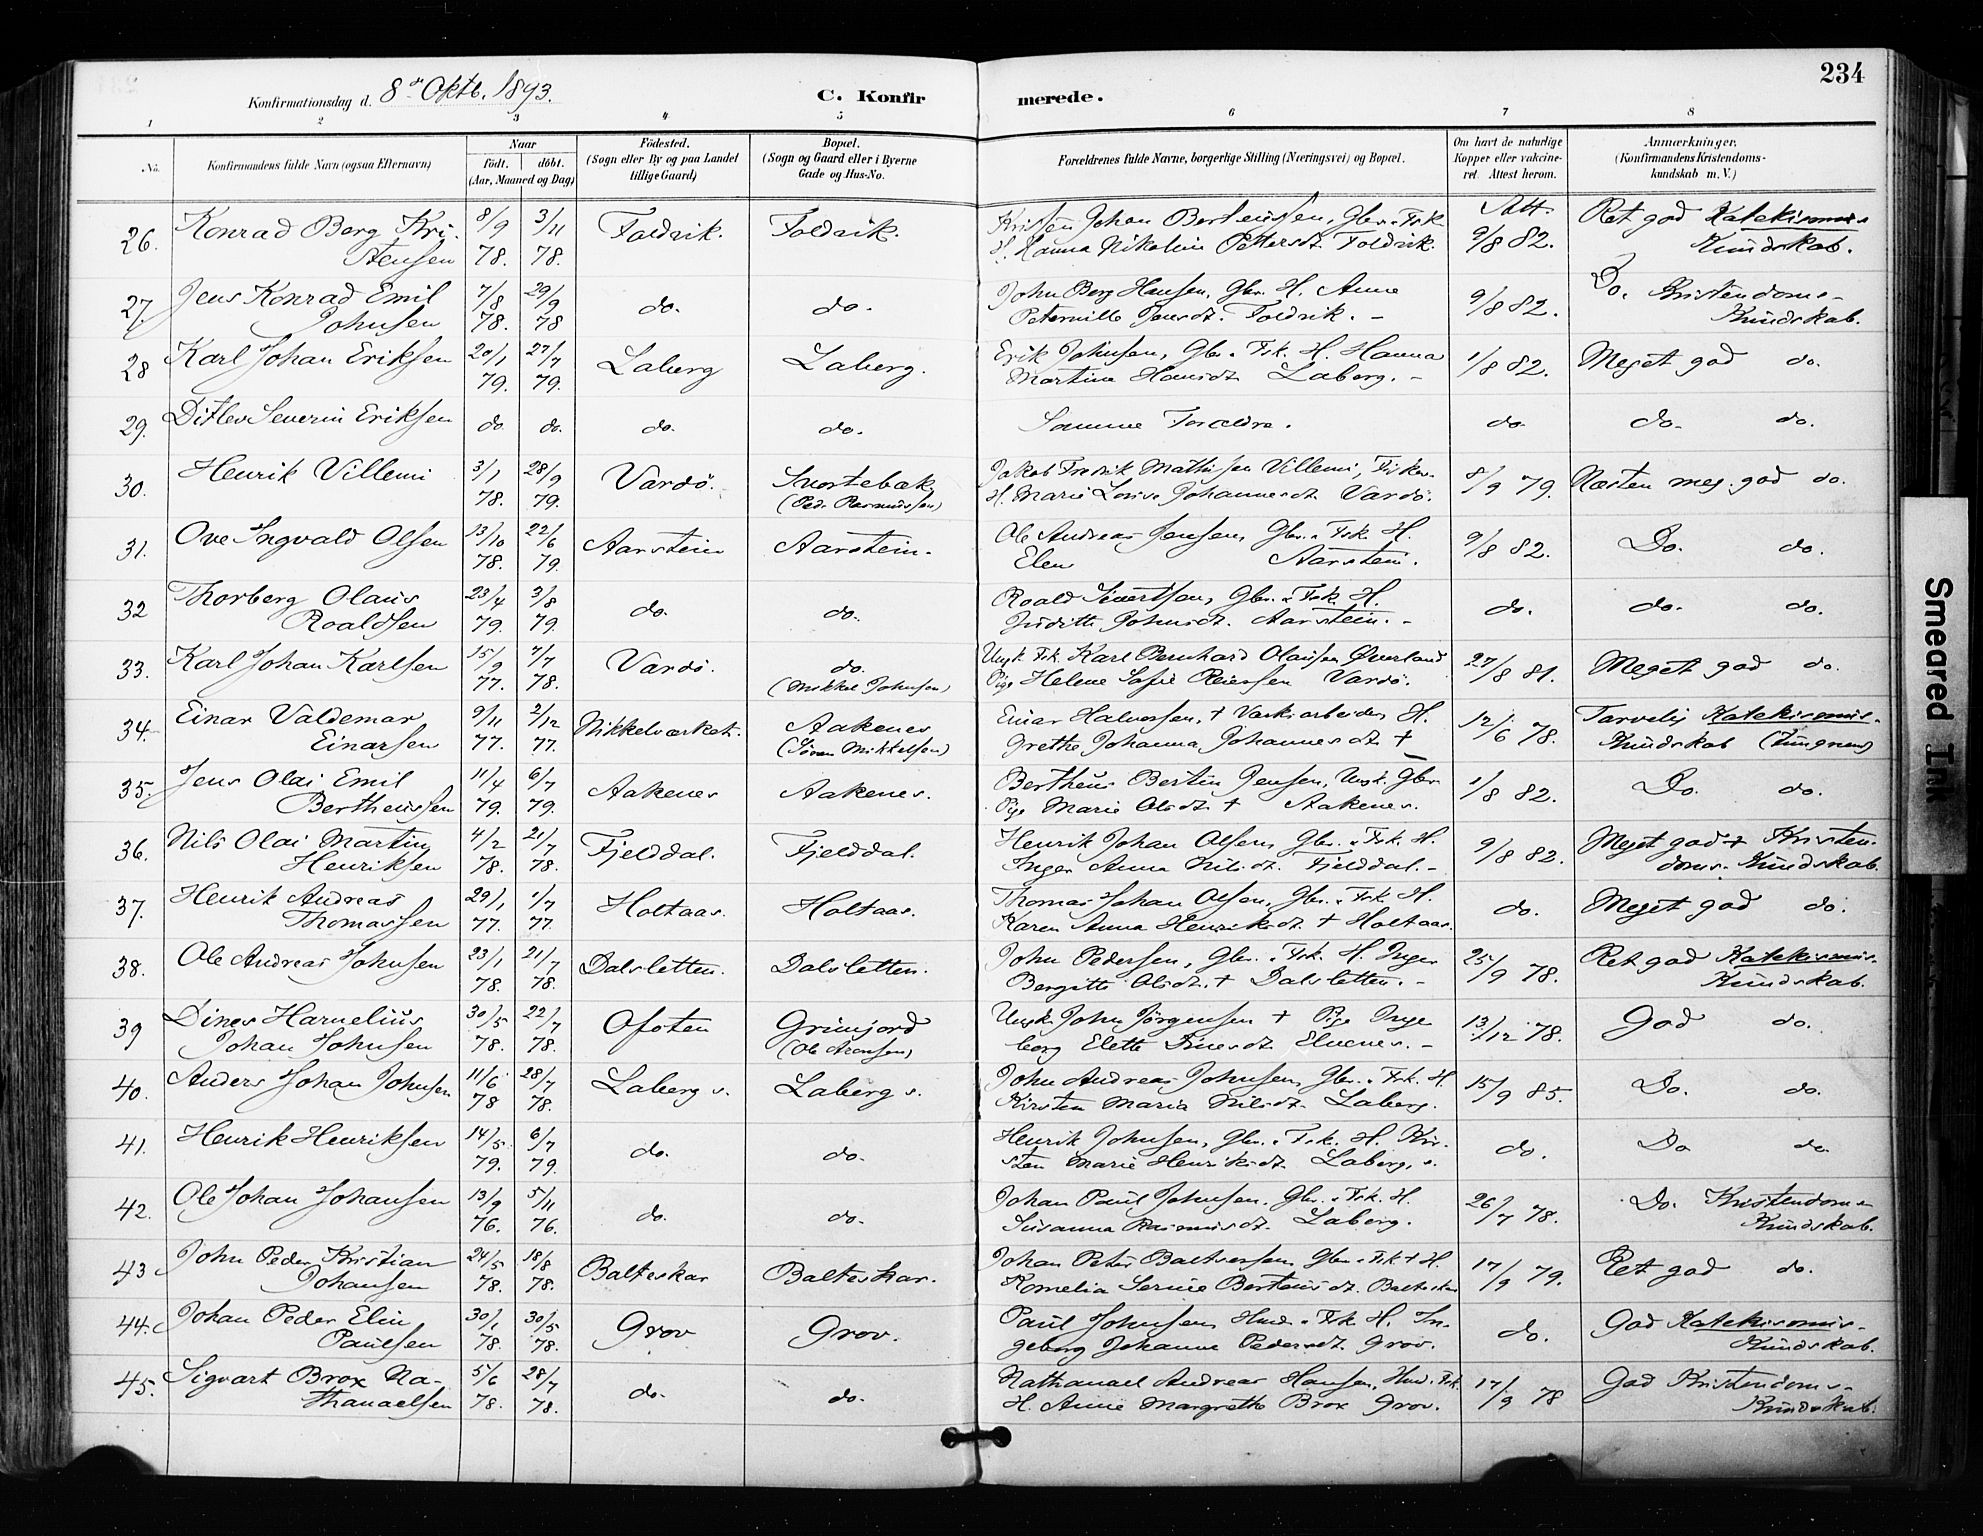 234
Konfirmationsdag d. 8de Oktb. 1893.
C. Konfirmerede.
1 2 3 4 5 6 7 8
No. Konfirmandens fulde Navn (ogsaa Efternavn) Naar födt. döbt. (Aar, Maaned og Dag) Födested. (Sogn eller By og paa Landet tillige Gaard) Bopæl. (Sogn og Gaard eller i Byerne Gade og Hus-No. Forældrenes fulde Navne, borgerlige Stilling (Næringsvei) og Bopæl. Om havt de naturlige Kopper eller vaccineret. Attest herom. Anmærkninger. (Konfirmandens Kristendomskundskab m. V.)
26. Konrad Berg Kri- 8/9 3/11 Foldvik. Foldvik. Kristen Johan Berthensen, Gbr. & Fsk. Att. Ret god Katekismus
stensen 78. 78. H. Hanna Nikolin Pettersdt. Foldvik. 9/8 82. Kundskab.
27. Jens Konrad Emil 7/8 29/9 do. do. John Berg Hansen, Gbr. H. Anne 9/8 82. Do. Kristendoms-
Johnsen 78. 78 Peternille Jensdt. Foldvik. - Kundskab.
28 Karl Johan Eriksen 20/1 27/7 Laberg Laberg. Erik Johnsen, Gbr. & Fsk. H. Hanna 1/8 82. Meget god do.
79. 79. Martine Hansdt. Laberg. -
29. Ditlev Severin Eriksen do do. do. do. Samme Forældre. do do- do.
30. Henrik Villemi 3/1 28/9 Vardö. Svortebak Jakob Fredrik Mathisen Villemi, Fisker 8/9 79. Næsten meg. god do.
78. 79. (Ped. Rasmussen) H. Marie Lovise Johannesdt. Vardö.
31. Ove Ingvald Olsen 13/10 22/6 Aarstein Aarstein. Ole Andreas Jensen, Gbr. & Fsk. H. 9/8 82. Do. do.
78. 79. Elen Aarstein.
32 Thorberg Olaus 23/4 3/8 do. do. Roald Sivertsen, Gbr. & Fsk. H. do. do. do.
Roaldsen 79. 79. Judith Johnsdt. Aarstein. -
33. Karl Johan Karlsen 15/9 7/7 Vardö. do. Ungk. Fsk. Karl Bernhard Olaussen Øverland 27/8 81. Meget god do.
77. 78. (Mikkal Johnsen) Pige Helene Sofie Reiersen Vardö.
34. Einar Valdemar 9/11 2/12 Nikkelværket. Aakenes Einar Halvorsen, + Verksarbeider H. 12/6 78. Tarvelig Katekismus-
Einarsen 77. 77. (Sören Mikkelsen) Grethe Johanna Johannesdt + Kundskab
35. Jens Olai Emil 11/4 6/7 Aakenes Aakenes. Bertheus Bertin Jensen, Ungk. Gbr 1/8 82. Do. do.
Bertheussen 79. 79. Pige Marie Olsdt + Aakenes.
36. Nils Olai Martin 4/2 21/7 Fjelddal. Fjelddal. Henrik Johan Olsen, Gbr. & Fsk. H. 9/8 82. Meget god + Kristen-
Henriksen 78. 78. Inger Anna Nilsdt. Fjelddal. - doms- Kundskab.
37. Henrik Andreas 29/1 1/7 Holtaas. Holtaas. Thomas Johan Olsen, Gbr. & Fsk. H. do. Meget god do.
Thomassen 77. 77. Karen Anna Henriksdt + Holtaas.
38. Ole Andreas Johnsen 23/1 21/7 Dalsletten. Dalsletten. John Pedersen, Gbr. & Fsk. H. Inger 25/9 78. Ret god Katekismus-
78. 78. Bergitte Olsdt. + Dalsletten. - Kundskab.
39 Dines Harnelius 30/5 22/7 Ofoten Grinjord Ungk. John Jörgensen + Pige Inge 13/12 78. God do.
Johan Johnsen 78. 78. (Ole Aronsen) borg Elette Dinesdt. Elvenes. -
40. Anders Johan Johnsen 11/6 28/7 Laberg s. Laberg s. John Andreas Johnsen, Gbr. & Fsk. H. 15/9 85. Do. do.
78 78. Kirsten Maria Nilsdt. Laberg.
41. Henrik Henriksen 14/5 6/7 do. do. Henrik Johnsen, Gbr. & Fsk. H. Kir- do. Do do
79. 79. sten Marie Henriksdt. Laberg. s.
42. Ole Johan Johansen 13/9 5/11 do. do. Johan Paul Johnsen, Gbr. & Fsk. H. 26/7 78. Do. Kristendoms
76. 76. Susanna Rasmusdt. Laberg. Kundskab.
43 John Peder Kristian 24/5 18/8 Balteskar Balteskar. Johan Peter Baltsersen Gbr. & Fsk + H. 17/9 79. Ret god do.
Johansen 78. 78. Kornelia Serine Bertheusdt. Balteskar
44. Johan Peder Elin 30/1 30/5 Grov Grov. Paul Johnsen, Husm. & Fsk. H. In- do. God Katekismus-
Paulsen 78. 78. geborg Johanna Pedersdt. Grov. Kundskab.
45. Sigvart Brox Na- 5/6 28/7 do. do. Nathanael Andreas Hansen, Husm. & Fsk. 17/9 78 God Kristendoms-
thanaelsen 78. 78. H. Anne Margrethe Brox Grov. Kundskab.
Smeared Ink